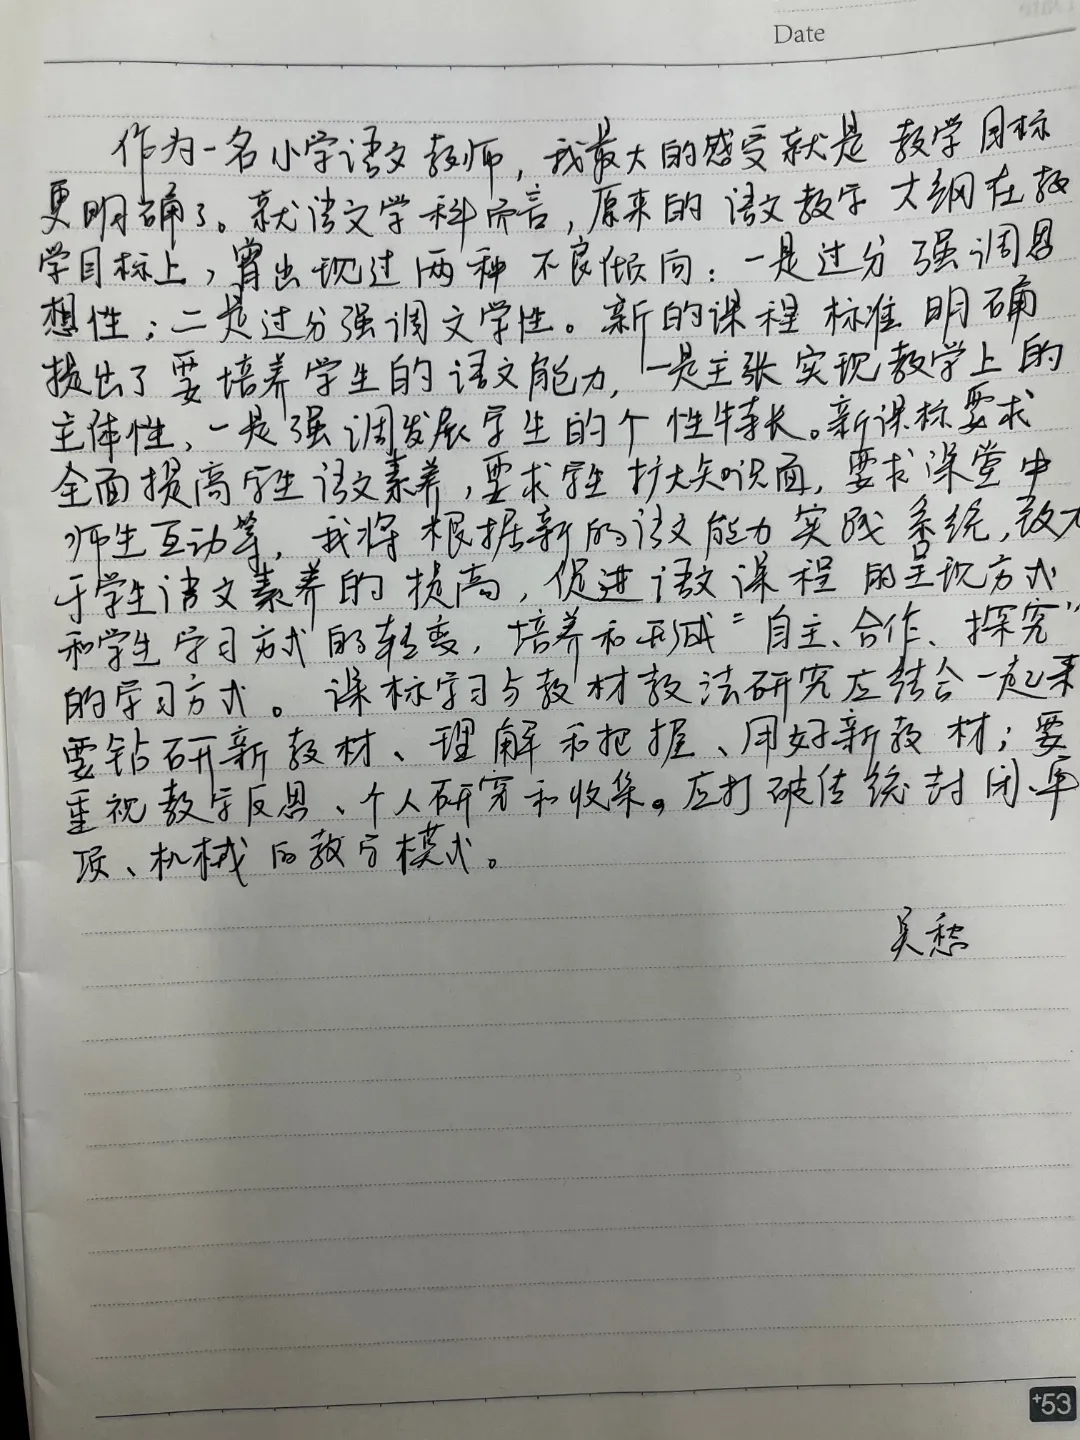 Date
作为一名小学语文教师，我最大的感受就是教学目标
更明确了。就语文学科而言，原来的语文教学大纲在教
学目标上，曾出现过两种不良倾向：一是过分强调思
想性；二是过分强调文学性。新的课程标准明确
提出了要培养学生的语文能力，一是主张实现教学上的
主体性，一是强调发展学生的个性特长。新课标要求
全面提高学生语文素养，要求学生扩大知识面，要求课堂中
师生互动等，我将根据新的语文能力实践系统，致力
于学生语文素养的提高，促进语文课程的呈现方式
和学生学习方式的转变，培养和形成"自主、合作、探究"
的学习方式。课标学习与教材教法研究应结合一起来
要钻研新教材、理解和把握、用好新教材；要
重视教学反思、个人研究和收集。应打破传统封闭、单
项、机械的教学模式。
吴愁
+53